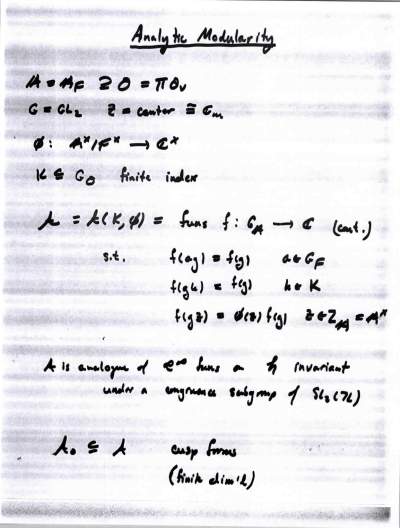 Analytic Modularity
𝔸 = 𝔸_F ⊇ O = ΠO_v
G = GL₂ Z = center ≅ G_m
φ : 𝔸ˣ/Fˣ → ℂˣ
K ⊆ G_O finite index
A = A(K, φ) = funs f : G_𝔸 → ℂ (cont.)
s.t. f(ag) = f(g) a ∈ G_F
f(gk) = f(g) k ∈ K
f(gz) = φ(z) f(g) z ∈ Z_𝔸 = 𝔸ˣ
A is analogue of C^∞ funs on h invariant
under a congruence subgroup of SL₂(ℤ)
A₀ ⊆ A cusp forms
(finite dim'l)